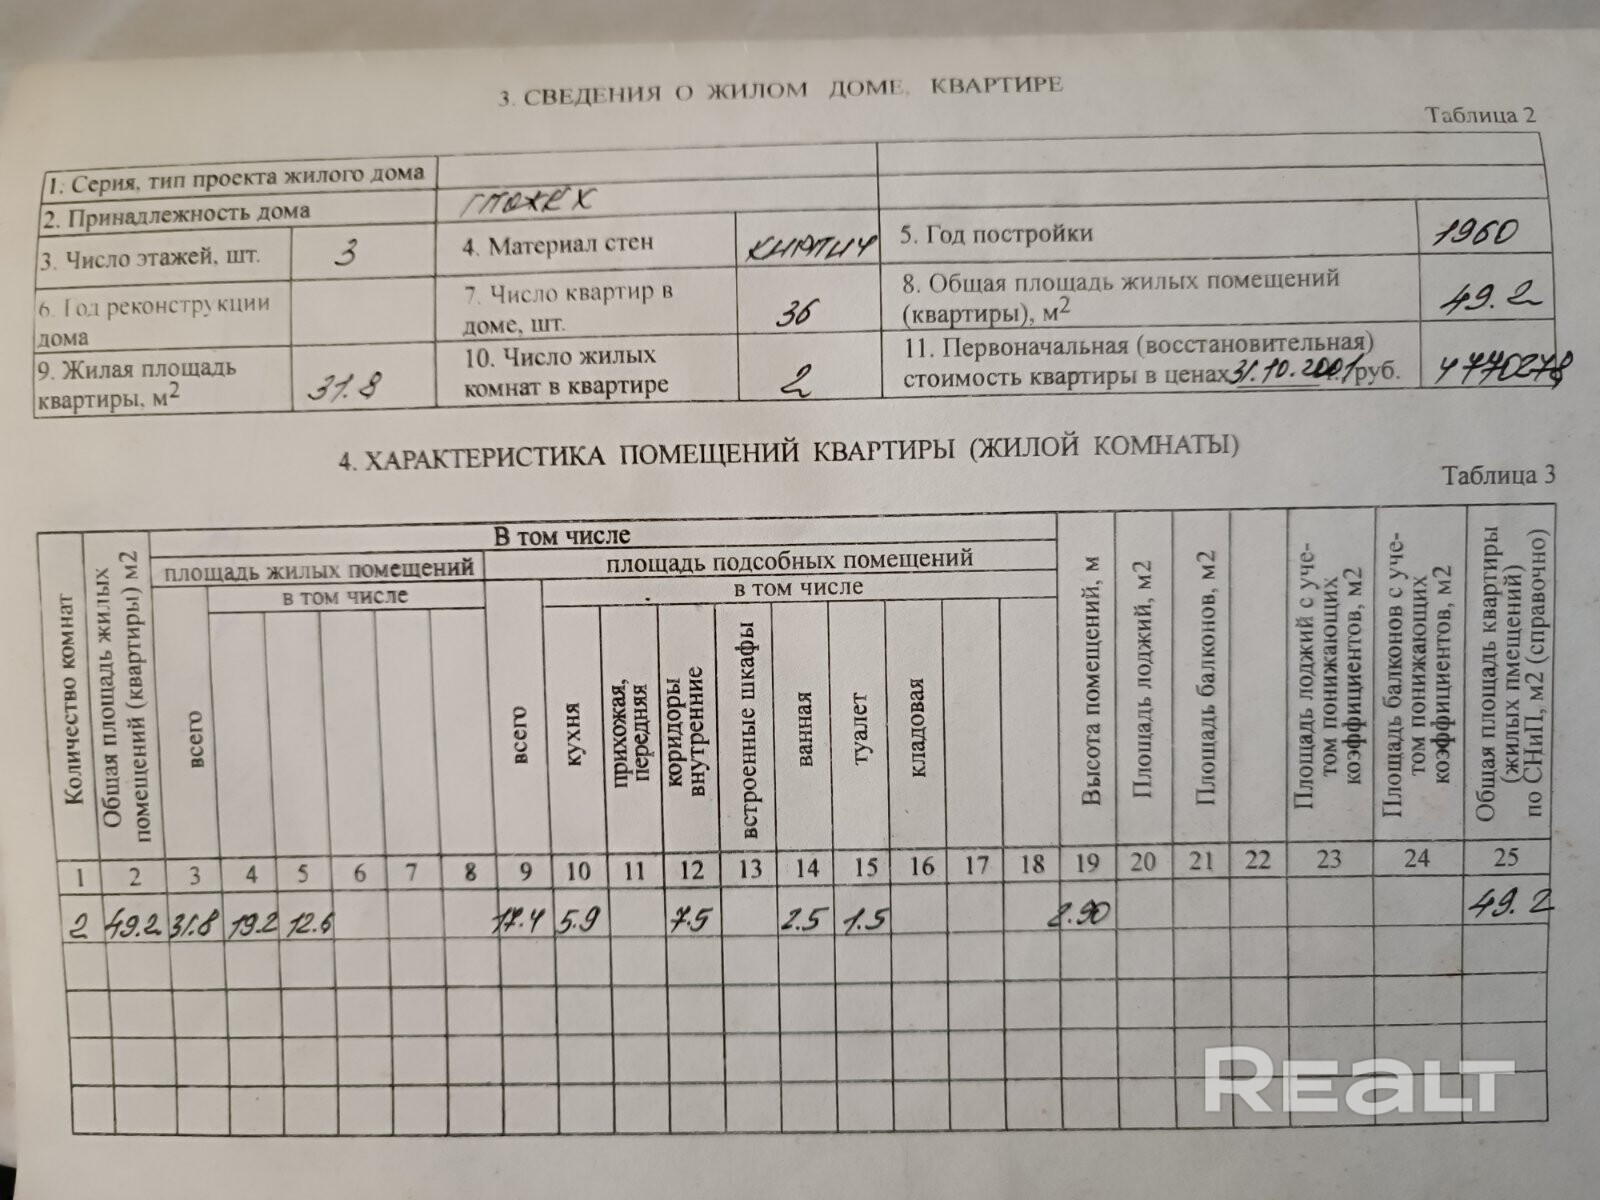 3. СВЕДЕНИЯ О ЖИЛОМ ДОМЕ, КВАРТИРЕ
Таблица 2
1. Серия, тип проекта жилого дома
2. Принадлежность дома
3. Число этажей, шт. 3 4. Материал стен кирпич 5. Год постройки 1960
6. Год реконструкции дома 7. Число квартир в доме, шт. 36 8. Общая площадь жилых помещений (квартиры), м2 49.2
9. Жилая площадь квартиры, м2 31.8 10. Число жилых комнат в квартире 2 11. Первоначальная (восстановительная) стоимость квартиры в ценах 31.10.2001 г. руб. 4770278
4. ХАРАКТЕРИСТИКА ПОМЕЩЕНИЙ КВАРТИРЫ (ЖИЛОЙ КОМНАТЫ)
Таблица 3
Количество комнат
Общая площадь жилых помещений (квартиры) м2
В том числе
площадь жилых помещений
в том числе
всего
площадь подсобных помещений
в том числе
всего
кухня
прихожая, передняя
коридоры внутренние
встроенные шкафы
ванная
туалет
кладовая
Высота помещений, м
Площадь лоджий, м2
Площадь балконов, м2
Площадь лоджий с учетом понижающих коэффициентов, м2
Площадь балконов с учетом понижающих коэффициентов, м2
Общая площадь квартиры (жилых пмещений) по СНиП, м2 (справочно)
1 2 3 4 5 6 7 8 9 10 11 12 13 14 15 16 17 18 19 20 21 22 23 24 25
2 49.2 31.8 19.2 12.6 17.4 5.9 7.5 2.5 1.5 2.90 49.2
REALT